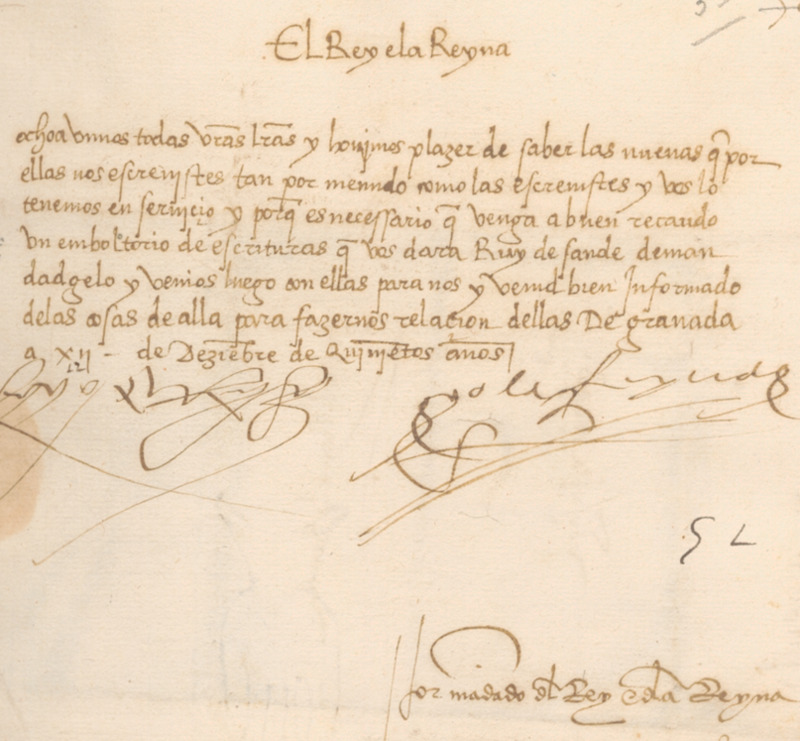 El Rey e la Reyna
ochoa vimos todas vr̃as lr̃as y hovimos plazer de saber las nuevas q̃ por
ellas nos escrevistes tan por menudo como las escrevistes y vos lo
tenemos en servicio y porq̃ es necessario q̃ venga a buen recaudo
vn emboltorio de escrituras q̃ vos dara Ruy de sande deman
dadgelo y venios luego con ellas para nos y venid bien Informado
delas cosas de alla para fazernos relacion dellas De granada
a xij de Deziẽbre de Quiniẽtos años
yo el Rey
yo la Reyna
Por mãdado dl Rey e dla Reyna